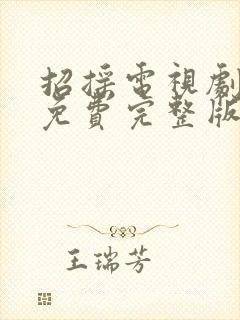 招採電視劇
免費完整版
王瑞芳